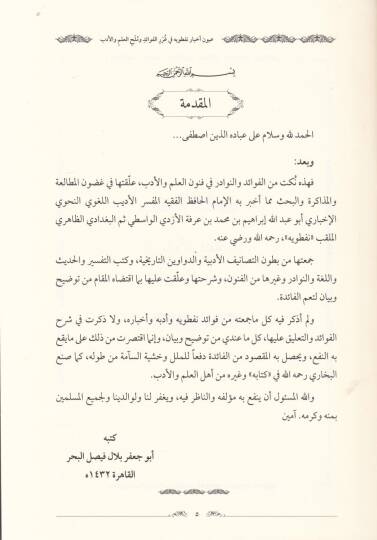 عيون أخبار نفطويه في غُرَر الفوائد ومُلَح العلم والأدب
بسم الله الرحمن الرحيم
المقدمة
الحمد لله وسلام على عباده الذين اصطفى...
وبعد:
فهذه نُكت من الفوائد والنوادر في فنون العلم والأدب، علّقتها في غضون المطالعة
والمذاكرة والبحث مما أخبر به الإمام الحافظ الفقيه المفسر الأديب اللغوي النحوي
الإخباري أبو عبد الله إبراهيم بن محمد بن عرفة الأزدي الواسطي ثم البغدادي الظاهري
الملقب «نفطويه»، رحمه الله ورضي عنه.
جمعتها من بطون التصانيف الأدبية والدواوين التاريخية، وكتب التفسير والحديث
واللغة والنوادر وغيرها من الفنون، وشرحتها وعلّقت عليها بما اقتضاه المقام من توضيح
وبيان لتعم الفائدة.
ولم أذكر فيه كل ماجمعته من فوائد نفطويه وأدبه وأخباره، ولا ذكرت في شرح
الفوائد والتعليق عليها، كل ماعندي من توضيح وبيان، وإنما اقتصرت من ذلك على مايقع
به النفع، ويحصل به المقصود من الفائدة دفعاً للملل وخشية السآمة من طوله، كما صنع
البخاري رحمه الله في «كتابه» وغيره من أهل العلم والأدب.
والله المسئول أن ينفع به مؤلفه والناظر فيه، ويغفر لنا ولوالدينا ولجميع المسلمين
بمنه وكرمه. آمين
كتبه
أبو جعفر بلال فيصل البحر
القاهرة ١٤٣٢ه
٥